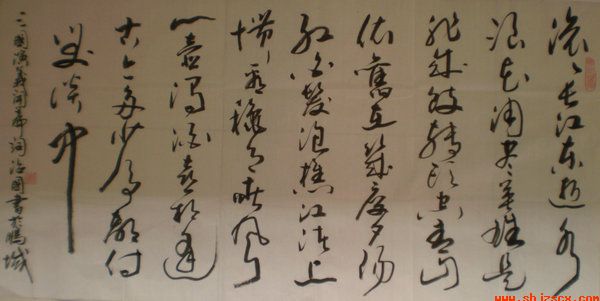 滚々长江东逝水
浪花淘尽英雄是
非成败转头空青山
依舊在几度夕阳
红白发渔樵江渚上
惯看秋月春风
一壶浊酒喜相逢
古今多少事都付
笑谈中
三國演義开篇词治国書于鹏城